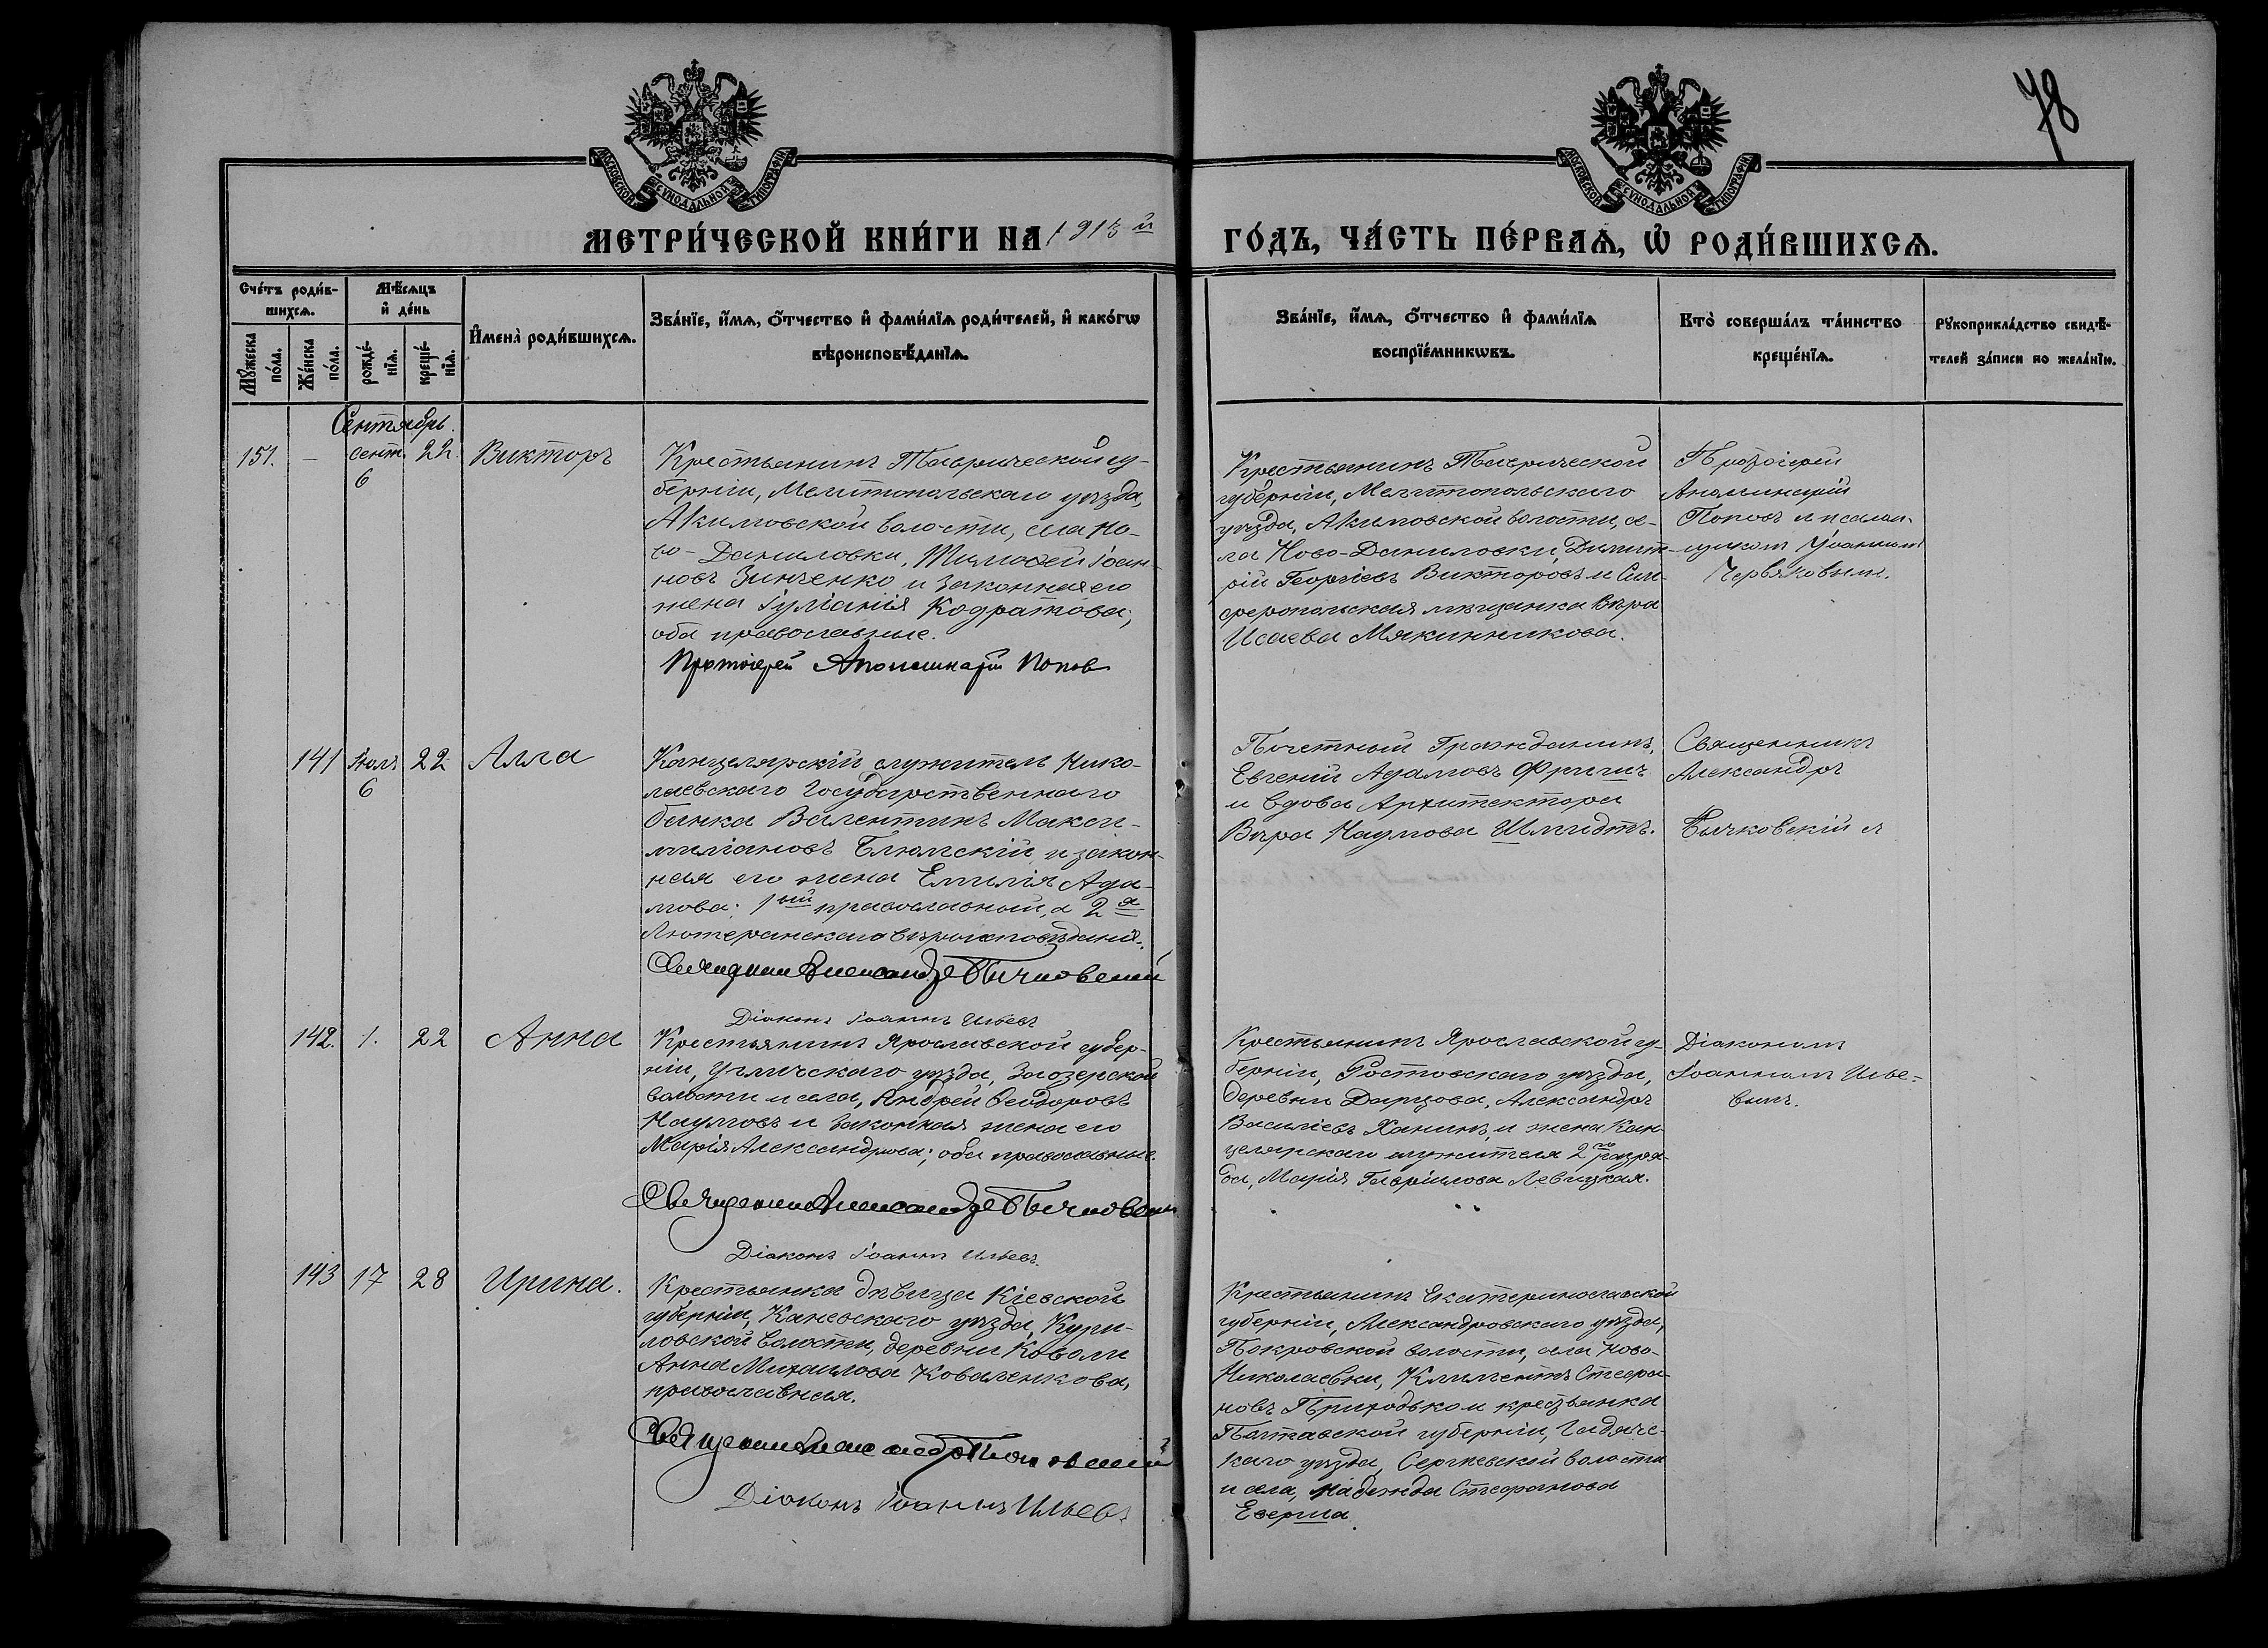 78
МОСКОВСКОЙ СѴНОДАЛЬНОЙ ТИПОГРАФІИ
МОСКОВСКОЙ СѴНОДАЛЬНОЙ ТИПОГРАФІИ
МЕТРИ́ЧЕСКОЙ КНИ́ГИ НА 1913 й
ГО́ДЪ, ЧА́СТЬ ПЕ́РВАѦ, Ѡ҆ РОДИ́ВШИХСѦ.
Сче́тъ роди́в-
шихсѧ.
Мѣ́сѧцъ
и҆ де́нь
Мꙋ́жеска
по́ла.
Же́нска
по́ла.
рожде́-
нїѧ.
креще́-
нїѧ.
И҆мена̀ роди́вшихсѧ.
Зва́нїе, и҆́мѧ, ѻ҆́тчество и҆ фами́лїѧ роди́телей, и҆ како́гѡ
вѣроисповѣ́данїѧ.
Зва́нїе, и҆́мѧ, ѻ҆́тчество и҆ фами́лїѧ
воспрїе́мникѡвъ.
Кто̀ соверша́лъ та́инство
креще́нїѧ.
Рꙋкоприкла́дство свидѣ́-
телей за́писи по жела́нїю.
Сентябрь.
151. — Сент. 22. Викторъ
6
Крестьянинъ Таврической гу-
берніи, Мелитопольскаго уѣзда,
Акимовской волости, села Но-
во-Даниловки, Тимофей Іоан-
новъ Зинченко и законная его
жена Іуліанія Кодратова;
оба православные.
Протоіерей Аполинарій Попов
Крестьянинъ Таврической
губерніи, Мелитопольскаго
уѣзда, Акимовской волости, се-
ла Ново-Даниловки, Димит-
рій Георгіевъ Викторовъ и Сим-
феропольская мѣщанка Вѣра
Исаева Мякинникова.
Протоіерей
Аполинарій
Поповъ и псалом-
щикомъ Іоанномъ
Червяковымъ.
141 Іюл. 22 Алла
6
Канцелярскій служитель Нико-
лаевскаго Государственнаго
банка Валентинъ Макси-
миліановъ Блюмскій и закон-
ная его жена Емилія Ада-
мова; 1ый православный, а 2я
Лютеранскаго вѣроисповѣданія.
Священникъ Александръ Бычковскій
Діаконъ Іоаннъ Ильевъ
Почетный Гражданинъ,
Евгеній Адамовъ Фричъ
и вдова Архитектора
Вѣра Наумова Шмидтъ.
Священникъ
Александръ
Бычковскій и
142. 1. 22 Анна
Крестьянинъ Ярославской губер-
ніи, Угличскаго уѣзда, Заозерской
волости и села, Андрей Ѳеодоровъ
Наумовъ и законная жена его
Марія Александрова; оба православные.
Священникъ Александръ Бычковскій
Діаконъ Іоаннъ Ильевъ.
Крестьянинъ Ярославской гу-
берніи, Ростовскаго уѣзда,
деревни Дарцова, Александръ
Василіевъ Ханинъ, и жена Кан-
целярскаго служителя 2го разря-
да, Марія Гавріилова Левицкая.
Діакономъ
Іоанномъ Илье-
вымъ.
143 17 28 Ирина.
Крестьянка дѣвица Кіевской
губерніи, Каневскаго уѣзда, Кури-
ловской волости, деревни Ковали
Анна Михаилова Коваленкова,
православная.
Священникъ Александръ Бычковскій
Діаконъ Іоаннъ Ильевъ
Крестьянинъ Екатеринославской
губерніи, Александровскаго уѣзда,
Покровской волости, села Ново-
Николаевки, Климентъ Стефа-
новъ Приходько и крестьянка
Полтавской губерніи, Гадяче-
скаго уѣзда, Сергіевской волости
и села, Надежда Стефанова